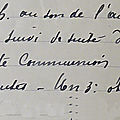 h. au son de l'au
suivi de suite d
te Communion
utes - Mon 3: ot